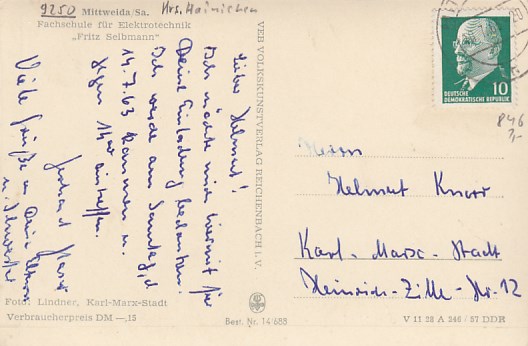 9250 Mittweida/Sa. Krs. Hainichen
Fachschule für Elektrotechnik
„Fritz Selbmann"
Lieber Helmut!
Ich möchte mich hiermit für
Deine Einladung bedanken.
Ich werde am Samstag, d.
14.7.63 kommen u.
gegen Uhr eintreffen.
Gerhard
Viele Grüße an Deine Eltern
u. Schwester
Foto: Lindner, Karl-Marx-Stadt
Verbraucherpreis DM —,15
VEB VOLKSKUNSTVERLAG REICHENBACH I.V.
Best. Nr. 14/688
10
DEUTSCHE
DEMOKRATISCHE REPUBLIK
846
Herrn
Helmut Knorr
Karl-Marx-Stadt
Heinrich-Zille-Str. 12
V 11 28 A 246 / 57 DDR